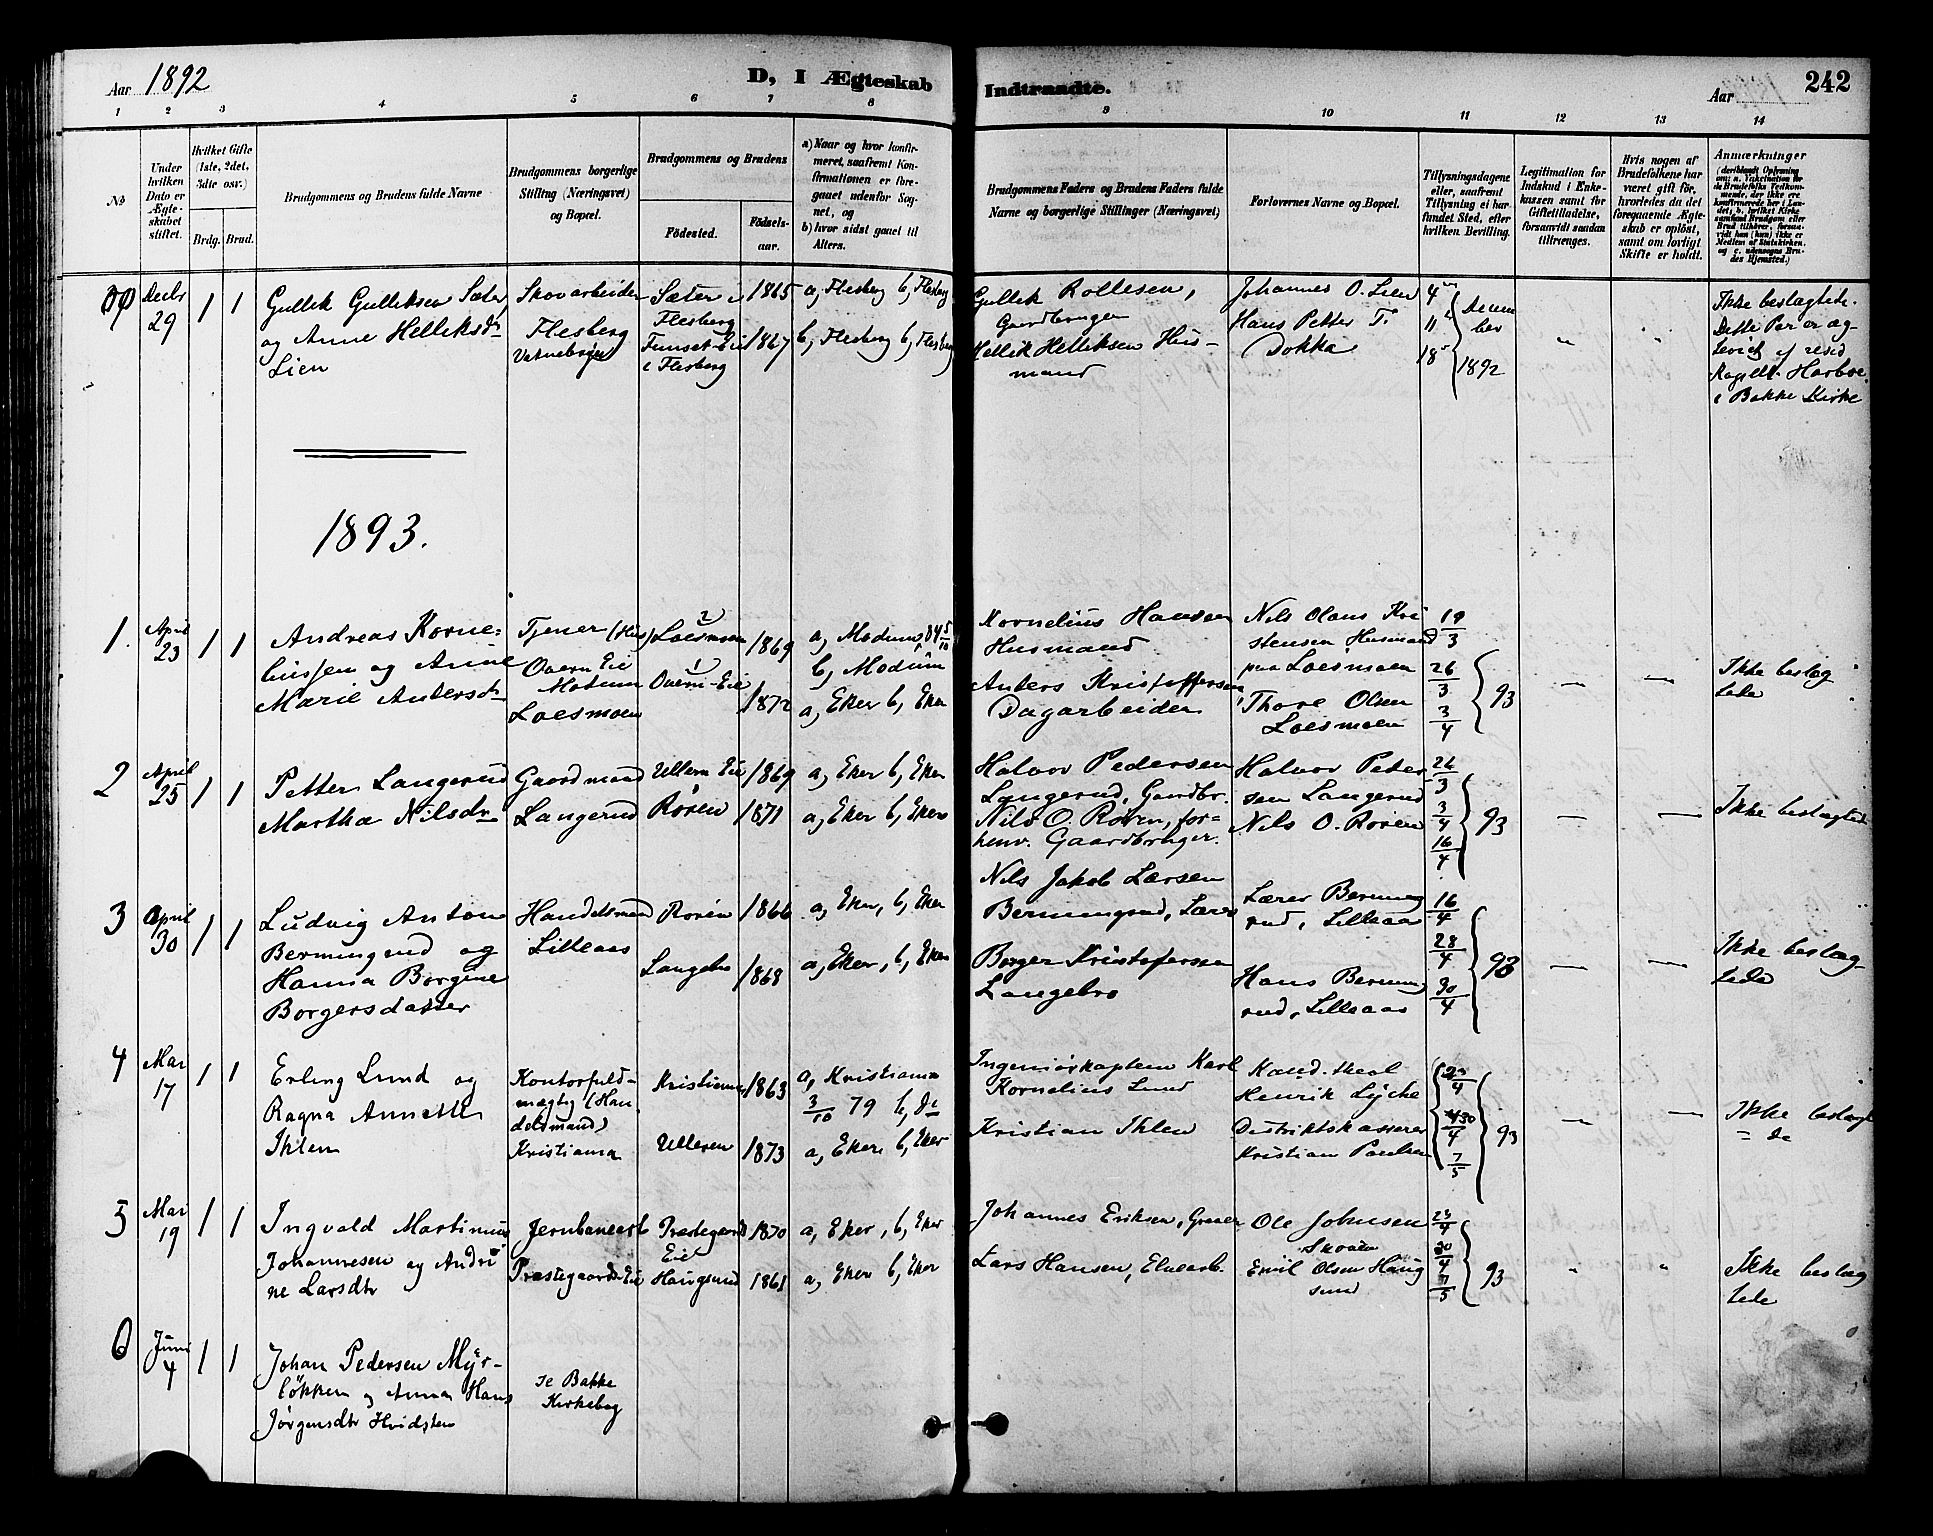 Aar 1892
D, I Ægteskab
Indtraadte.
Aar
242
1 2 3 4 5 6 7 8
9 10 11 12 13 14
No
Under hvilken Dato er Ægteskabet stiftet.
Hvilket Gifte (1ste, 2det, 3die osv.)
Brdg.
Brud.
Brudgommens og Brudens fulde Navne
Brudgommens borgerlige Stilling (Næringsvei) og Bopæl.
Brudgommens og Brudens
Fødested.
Fødselsaar.
a) Naar og hvor konfirmeret, saafremt Konfirmationen er foregaaet udenfor Sognet, og
b) hvor sidst gaaet til Alters.
Brudgommens Faders og Brudens Faders fulde Navne og borgerlige Stillinger (Næringsvei)
Forlovernes Navne og Bopæl.
Tillysningsdagene eller, saafremt Tillysning ei har fundet Sted, efter hvilken Bevilling.
Legitimation for Indskud i Enkekassen samt for Giftetilladelse, forsaavidt saadan tiltrænges.
Hvis nogen af Brudefolkene har været gift før, hvorledes da det foregaaende Ægteskab er opløst, samt om lovligt Skifte er holdt.
Anmærkninger
Decbr 29
1 1
Gullik Gulliksen Sæter
og Anne Helleksdr
Lien
Skovarbeider
Flesberg
Sæter i
Flesberg
i Flesberg
1865
1867
a, Flesberg b, Flesberg
b, Flesberg b, Flesberg
Gullik Rollesen,
Gaardbruger
Hellik Helliksen Husmand
Johannes O. Lien
Hans Petter T.
Dokka
4
11
18
Decem
ber
1892
Ikke beslægtede.
Dette Par er æg-
teviet af resid
Kapell. Harboe
i Bakke Kirke
1893.
1. April 23 1 1
Andreas Korne-
liussen og Anne
Marie Andersdr
Tjener (Hus)
Overn Eie
Modum
Loesmoen
2
Loesmoen
1
Overn-Eie
1869
1872
a, Modum, 84 5/10
b, Modum
a, Eker b, Eker
Kornelius Hansen
Husmand
Anders Kristoffersen
Dagarbeider
Nils Olaus Kri
stensen Husmand
paa Loesmoen
Thore Olsen
Loesmoen
19/3
26/3
3/4
93
Ikke beslæg
tede
2 April 25 1 1
Petter Langerud
Martha Nilsdr
Gaardmand
Langerud
Ullern Eie
Roren
1869
1871
a, Eker b, Eker
a, Eker b, Eker
Halvor Pedersen
Langerud, Gardbr.
Nils O. Roren, for-
henv. Gaardbruger.
Halvor Peter
sen Langerud
Nils O. Roren
26/3
3/4
16/4
93
Ikke beslægtede
3 April 30 1 1
Ludvig Anton
Bermingrud og
Hanna Borgine
Borgersdatter
Handelsmand
Lilleaas
Roren
Langebro
1866
1868
a, Eker, b, Eker
a, Eker, b, Eker
Nils Jakob Larsen
Bermingrud, Lærer
Borger Kristofersen
Langebro
Lærer Berming
rud, Lilleaas
Hans Berming
rud, Lilleaas
16/4
28/4
30/4
93
Ikke beslæg-
tede
4 Mai 17 1 1
Erling Lund og
Ragna Annette
Ihlen
Kontorfuld-
mægtig (Han
delsmand)
Kristiania
Kristiania
Ulleren
1863
1873
a, Kristiania
3/10 79 b, do
a, Eker b, Eker
Ingeniørkaptein Karl
Kornelius Lund
Kristian Ihlen
Kand. theol
Henrik Lycke
Distriktskasserer
Kristian Paulsen
23/4
30/4
7/5
93
Ikke beslægt
= de
5 Mai 19 1 1
Ingvald Martinius
Johannesen og Andri
ne Larsdtr
Jernbanearb
Præstegaards Eie
Præstegaards
Eie
Haugsund
1870
1861
a, Eker, b, Eker
a, Eker b, Eker
Johannes Eriksen,
Lars Hansen, Elvearb.
Ole Johnsen
Skoien
Emil Olsen Haug
sund
23/4
30/4
7/5
93
Ikke beslæg
tede
6 Juni 4 1 1
Johan Pedersen Myr-
løkken og Anna Hans
Jørgensdtr Hvidsten
se Bakke
Kirkebog